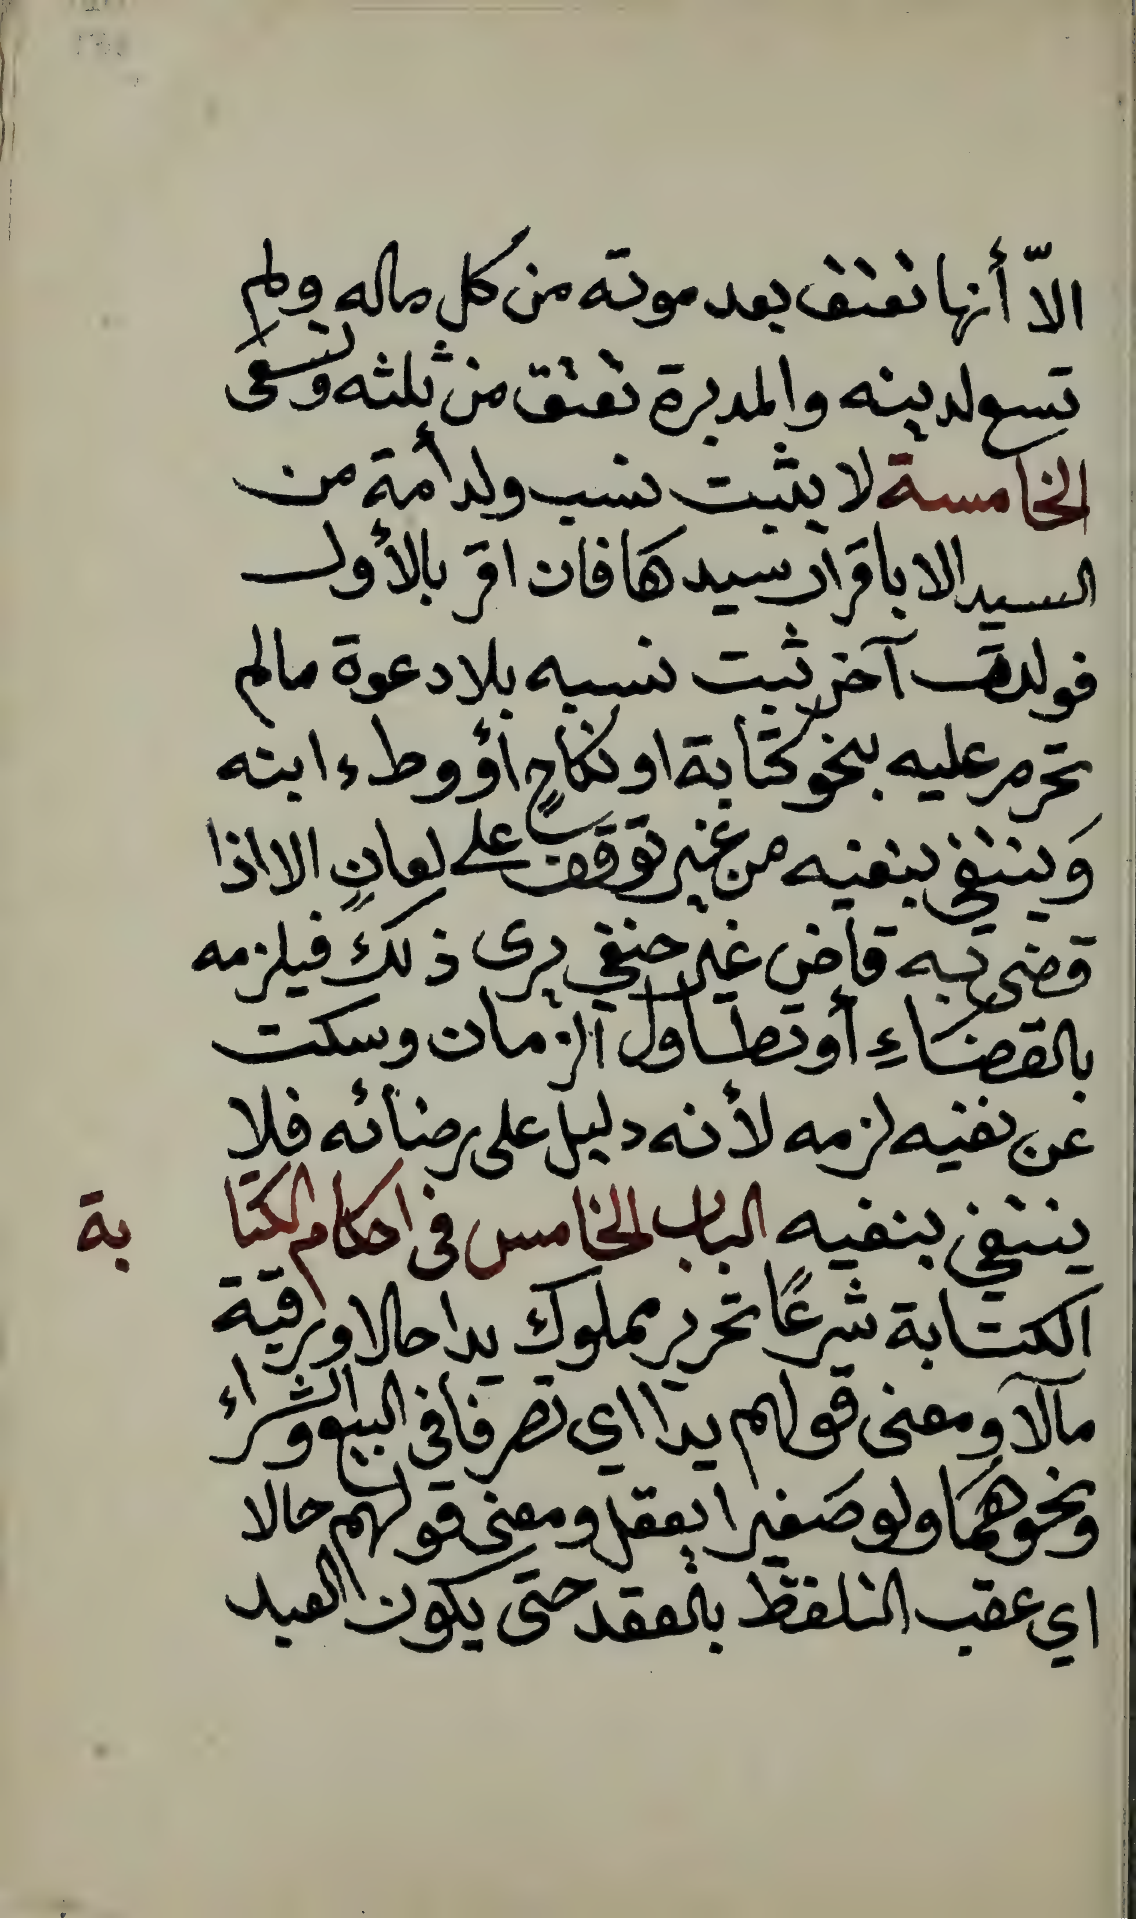 الاّ أنها تعتق بعد موته من كل ماله ولم
تسع لدينه والمدبرة تعتق من ثلثه وتسعى
الخامسة لا يثبت نسب ولد أمة من
السيد الا باقرار سيدها فان اقر بالأول
فولدت آخر ثبت نسبه بلا دعوة مالم
تحرم عليه بنحو كتابة او نكاحٍ أو وطء ابنه
وَينتفي بنفيه من غير توقف على لعانٍ الا اذا
قضى به قاض غير حنفي يرى ذلك فيلزمه
بالقضاءِ أو تطاول الزمان وسكت
عن نفيه لزمه لأنه دليل على رضائه فلا
ينتفي بنفيه الباب الخامس في احكام الكتابة
الكتابة شرعًا تحرير مملوك يدا حالا ورقبة
مآلا ومعنى قولهم يدا اي تصرفا في البيع والشراء
ونحوهمَا ولو صَغيرا يعقل ومعنى قولهم حالا
اي عقب التلفظ بالعقد حتى يكون العبد